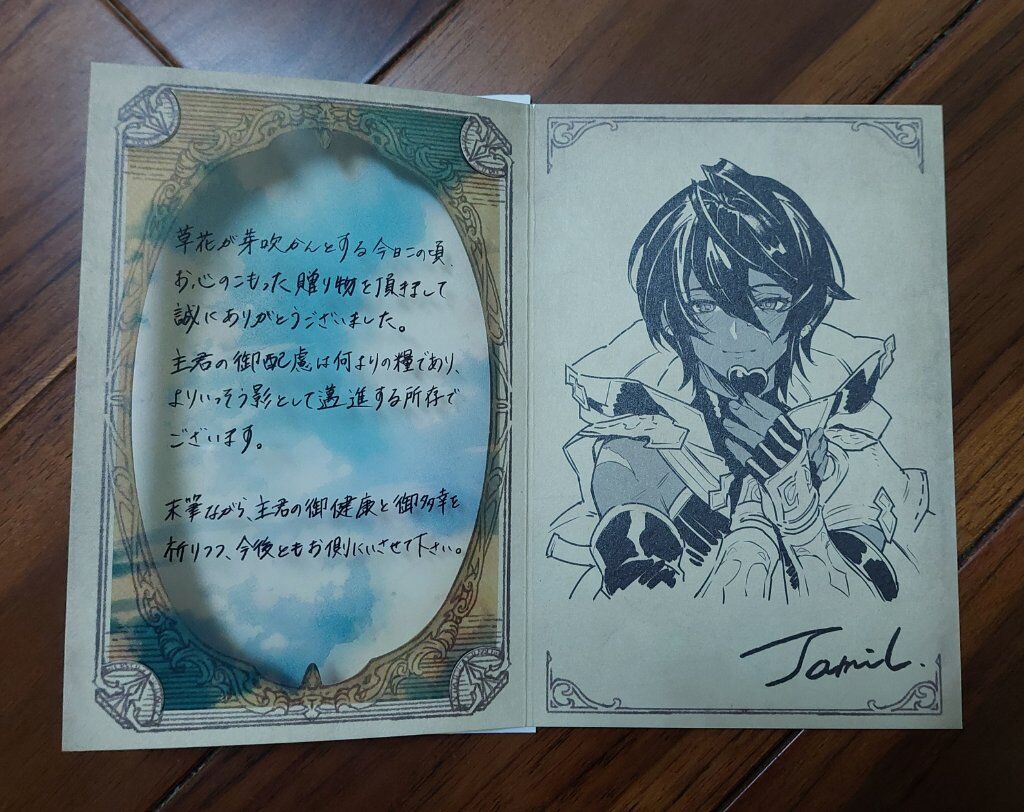 草花が芽吹かんとする今日この頃、
お心のこもった贈り物を頂きまして
誠にありがとうございました。
主君の御配慮は何よりの糧であり、
よりいっそう影として邁進する所存で
ございます。
末筆ながら、主君の御健康と御多幸を
祈りつつ、今後ともお側にいさせて下さい。
Jamil.